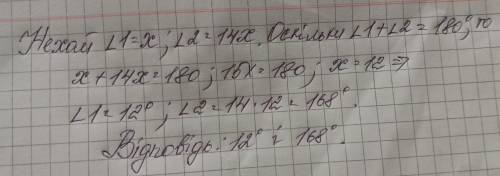 Нехай ∠1=x; ∠2=14x. Оскільки ∠1+∠2=180°, то
x+14x=180; 15x=180; x=12 ⇒
∠1=12°; ∠2=14·12=168°.
Відповідь: 12° і 168°.